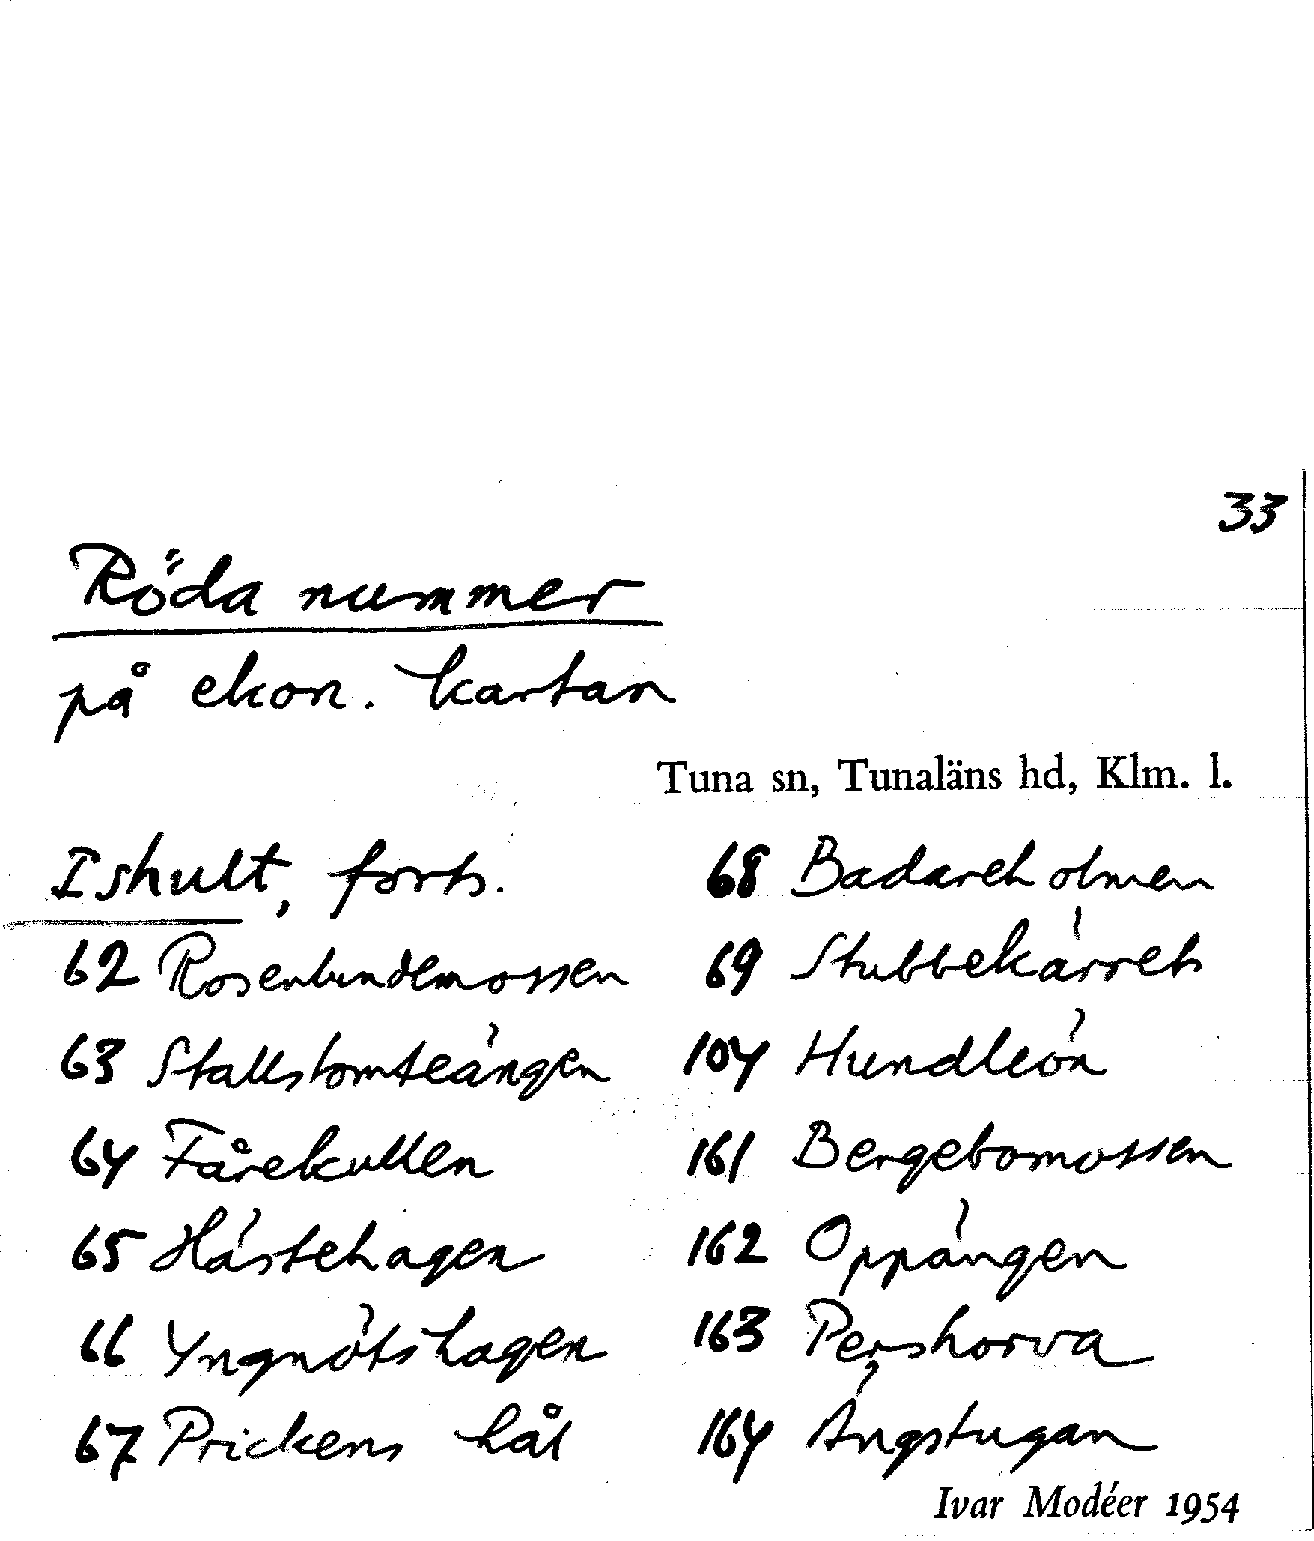 33
Röda nummer
på ekon. kartan
Tuna sn, Tunaläns hd, Klm. l.
Ishult, forts.
62 Rosenlundemossen
63 Stallstomteängen
64 Fårekullen
65 Hästehagen
66 Yngnötshagen
67 Prickens hål
68 Badareholmen
69 Stubbekärret
104 Hundleön
161 Bergebomossen
162 Oppängen
163 Pershorva
164 Ängstugan
Ivar Modéer 1954